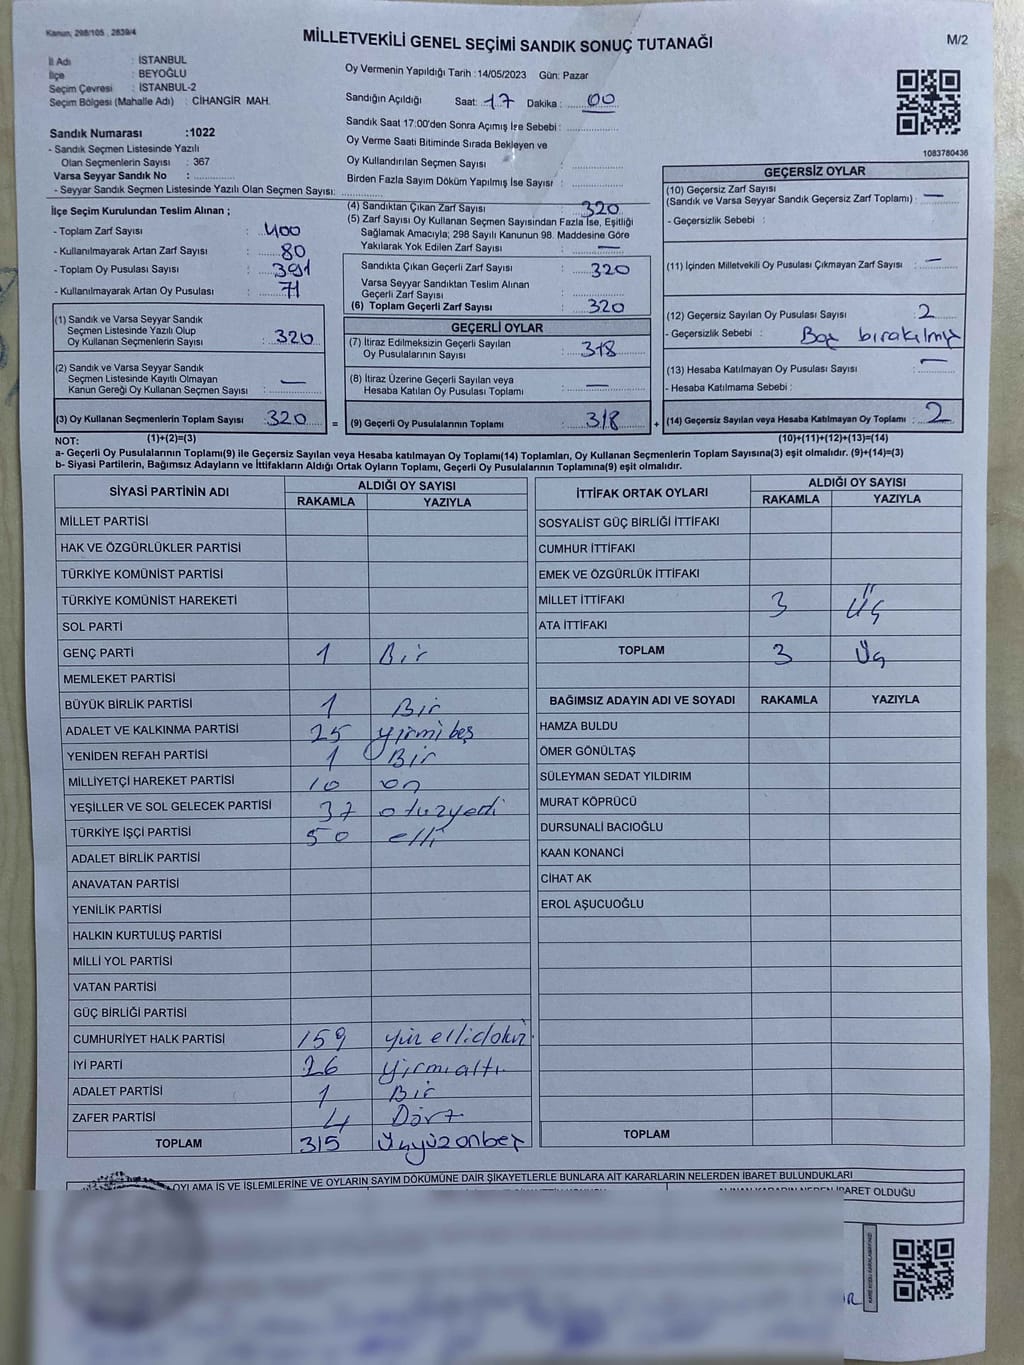 Kanun, 298/105 , 2839/4
MİLLETVEKİLİ GENEL SEÇİMİ SANDIK SONUÇ TUTANAĞI
M/2
İl Adı : İSTANBUL
İlçe : BEYOĞLU
Seçim Çevresi : İSTANBUL-2
Seçim Bölgesi (Mahalle Adı) : CİHANGİR MAH.
Sandık Numarası :1022
- Sandık Seçmen Listesinde Yazılı
Olan Seçmenlerin Sayısı : 367
Varsa Seyyar Sandık No :
- Seyyar Sandık Seçmen Listesinde Yazılı Olan Seçmen Sayısı:
Oy Vermenin Yapıldığı Tarih :14/05/2023 Gün: Pazar
Sandığın Açıldığı Saat: 17 Dakika : 00
Sandık Saat 17:00'den Sonra Açımış İse Sebebi :
Oy Verme Saati Bitiminde Sırada Bekleyen ve
Oy Kullandırılan Seçmen Sayısı :
Birden Fazla Sayım Döküm Yapılmış İse Sayısı :
1083780436
İlçe Seçim Kurulundan Teslim Alınan ;
- Toplam Zarf Sayısı : 400
- Kullanılmayarak Artan Zarf Sayısı : 80
- Toplam Oy Pusulası Sayısı : 391
- Kullanılmayarak Artan Oy Pusulası : 71
(1) Sandık ve Varsa Seyyar Sandık
Seçmen Listesinde Yazılı Olup
Oy Kullanan Seçmenlerin Sayısı : 320
(2) Sandık ve Varsa Seyyar Sandık
Seçmen Listesinde Kayıtlı Olmayan
Kanun Gereği Oy Kullanan Seçmen Sayısı : —
(3) Oy Kullanan Seçmenlerin Toplam Sayısı : 320
(4) Sandıktan Çıkan Zarf Sayısı : 320
(5) Zarf Sayısı Oy Kullanan Seçmen Sayısından Fazla İse, Eşitliği
Sağlamak Amacıyla; 298 Sayılı Kanunun 98. Maddesine Göre
Yakılarak Yok Edilen Zarf Sayısı : —
Sandıkta Çıkan Geçerli Zarf Sayısı : 320
Varsa Seyyar Sandıktan Teslim Alınan
Geçerli Zarf Sayısı :
(6) Toplam Geçerli Zarf Sayısı : 320
GEÇERLİ OYLAR
(7) İtiraz Edilmeksizin Geçerli Sayılan
Oy Pusulalarının Sayısı : 318
(8) İtiraz Üzerine Geçerli Sayılan veya
Hesaba Katılan Oy Pusulası Toplamı : —
= (9) Geçerli Oy Pusulalarının Toplamı : 318
GEÇERSİZ OYLAR
(10) Geçersiz Zarf Sayısı
(Sandık ve Varsa Seyyar Sandık Geçersiz Zarf Toplamı) : —
- Geçersizlik Sebebi :
(11) İçinden Milletvekili Oy Pusulası Çıkmayan Zarf Sayısı : —
(12) Geçersiz Sayılan Oy Pusulası Sayısı : 2
- Geçersizlik Sebebi : Boş bırakılmış
(13) Hesaba Katılmayan Oy Pusulası Sayısı : —
- Hesaba Katılmama Sebebi :
+ (14) Geçersiz Sayılan veya Hesaba Katılmayan Oy Toplamı : 2
NOT: (1)+(2)=(3) (10)+(11)+(12)+(13)=(14)
a- Geçerli Oy Pusulalarının Toplamı(9) ile Geçersiz Sayılan veya Hesaba katılmayan Oy Toplamı(14) Toplamları, Oy Kullanan Seçmenlerin Toplam Sayısına(3) eşit olmalıdır. (9)+(14)=(3)
b- Siyasi Partilerin, Bağımsız Adayların ve İttifakların Aldığı Ortak Oyların Toplamı, Geçerli Oy Pusulalarının Toplamına(9) eşit olmalıdır.
SİYASİ PARTİNİN ADI ALDIĞI OY SAYISI
RAKAMLA YAZIYLA
MİLLET PARTİSİ
HAK VE ÖZGÜRLÜKLER PARTİSİ
TÜRKİYE KOMÜNİST PARTİSİ
TÜRKİYE KOMÜNİST HAREKETİ
SOL PARTİ
GENÇ PARTİ 1 Bir
MEMLEKET PARTİSİ
BÜYÜK BİRLİK PARTİSİ 1 Bir
ADALET VE KALKINMA PARTİSİ 25 yirmi beş
YENİDEN REFAH PARTİSİ 1 Bir
MİLLİYETÇİ HAREKET PARTİSİ 10 on
YEŞİLLER VE SOL GELECEK PARTİSİ 37 otuzyedi
TÜRKİYE İŞÇİ PARTİSİ 50 elli
ADALET BİRLİK PARTİSİ
ANAVATAN PARTİSİ
YENİLİK PARTİSİ
HALKIN KURTULUŞ PARTİSİ
MİLLİ YOL PARTİSİ
VATAN PARTİSİ
GÜÇ BİRLİĞİ PARTİSİ
CUMHURİYET HALK PARTİSİ 159 yüz ellidokuz
İYİ PARTİ 26 yirmialtı
ADALET PARTİSİ 1 Bir
ZAFER PARTİSİ 4 Dört
TOPLAM 315 üçyüzonbeş
İTTİFAK ORTAK OYLARI ALDIĞI OY SAYISI
RAKAMLA YAZIYLA
SOSYALİST GÜÇ BİRLİĞİ İTTİFAKI
CUMHUR İTTİFAKI
EMEK VE ÖZGÜRLÜK İTTİFAKI
MİLLET İTTİFAKI 3 Üç
ATA İTTİFAKI
TOPLAM 3 Üç
BAĞIMSIZ ADAYIN ADI VE SOYADI RAKAMLA YAZIYLA
HAMZA BULDU
ÖMER GÖNÜLTAŞ
SÜLEYMAN SEDAT YILDIRIM
MURAT KÖPRÜCÜ
DURSUNALİ BACIOĞLU
KAAN KONANCİ
CİHAT AK
EROL AŞUCUOĞLU
TOPLAM
OYLAMA İŞ VE İŞLEMLERİNE VE OYLARIN SAYIM DÖKÜMÜNE DAİR ŞİKAYETLERLE BUNLARA AİT KARARLARIN NELERDEN İBARET BULUNDUKLARI
ALINAN KARARIN NEDEN İBARET OLDUĞU